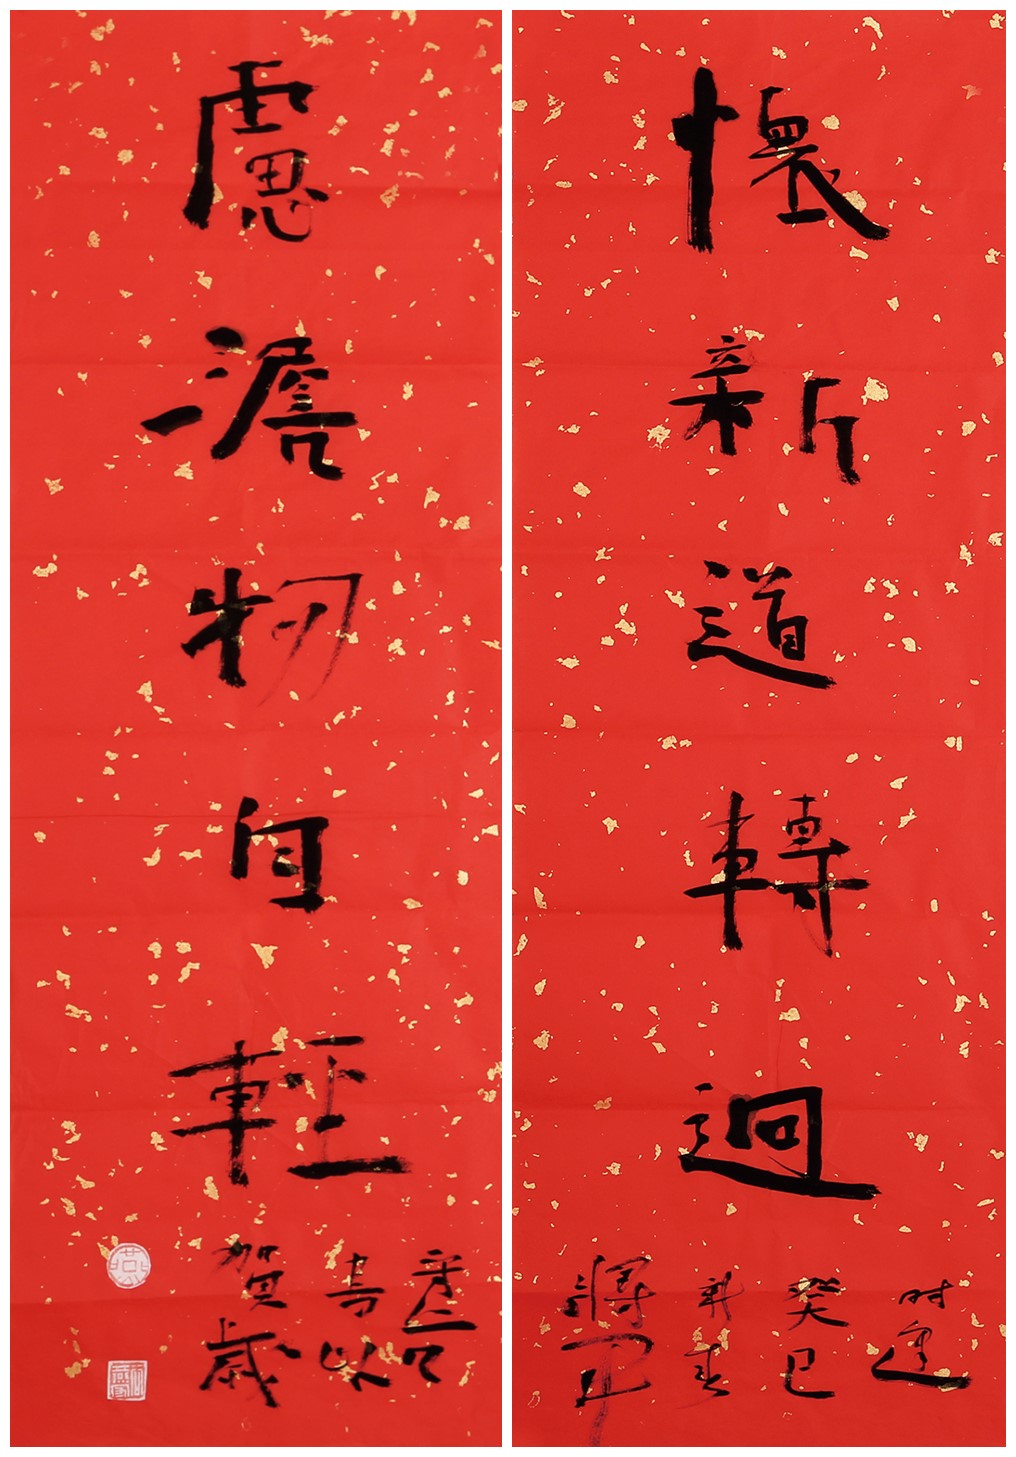 懷新道轉迥
时逢
癸巳
新春
慮澹物自輕
書以
賀歲